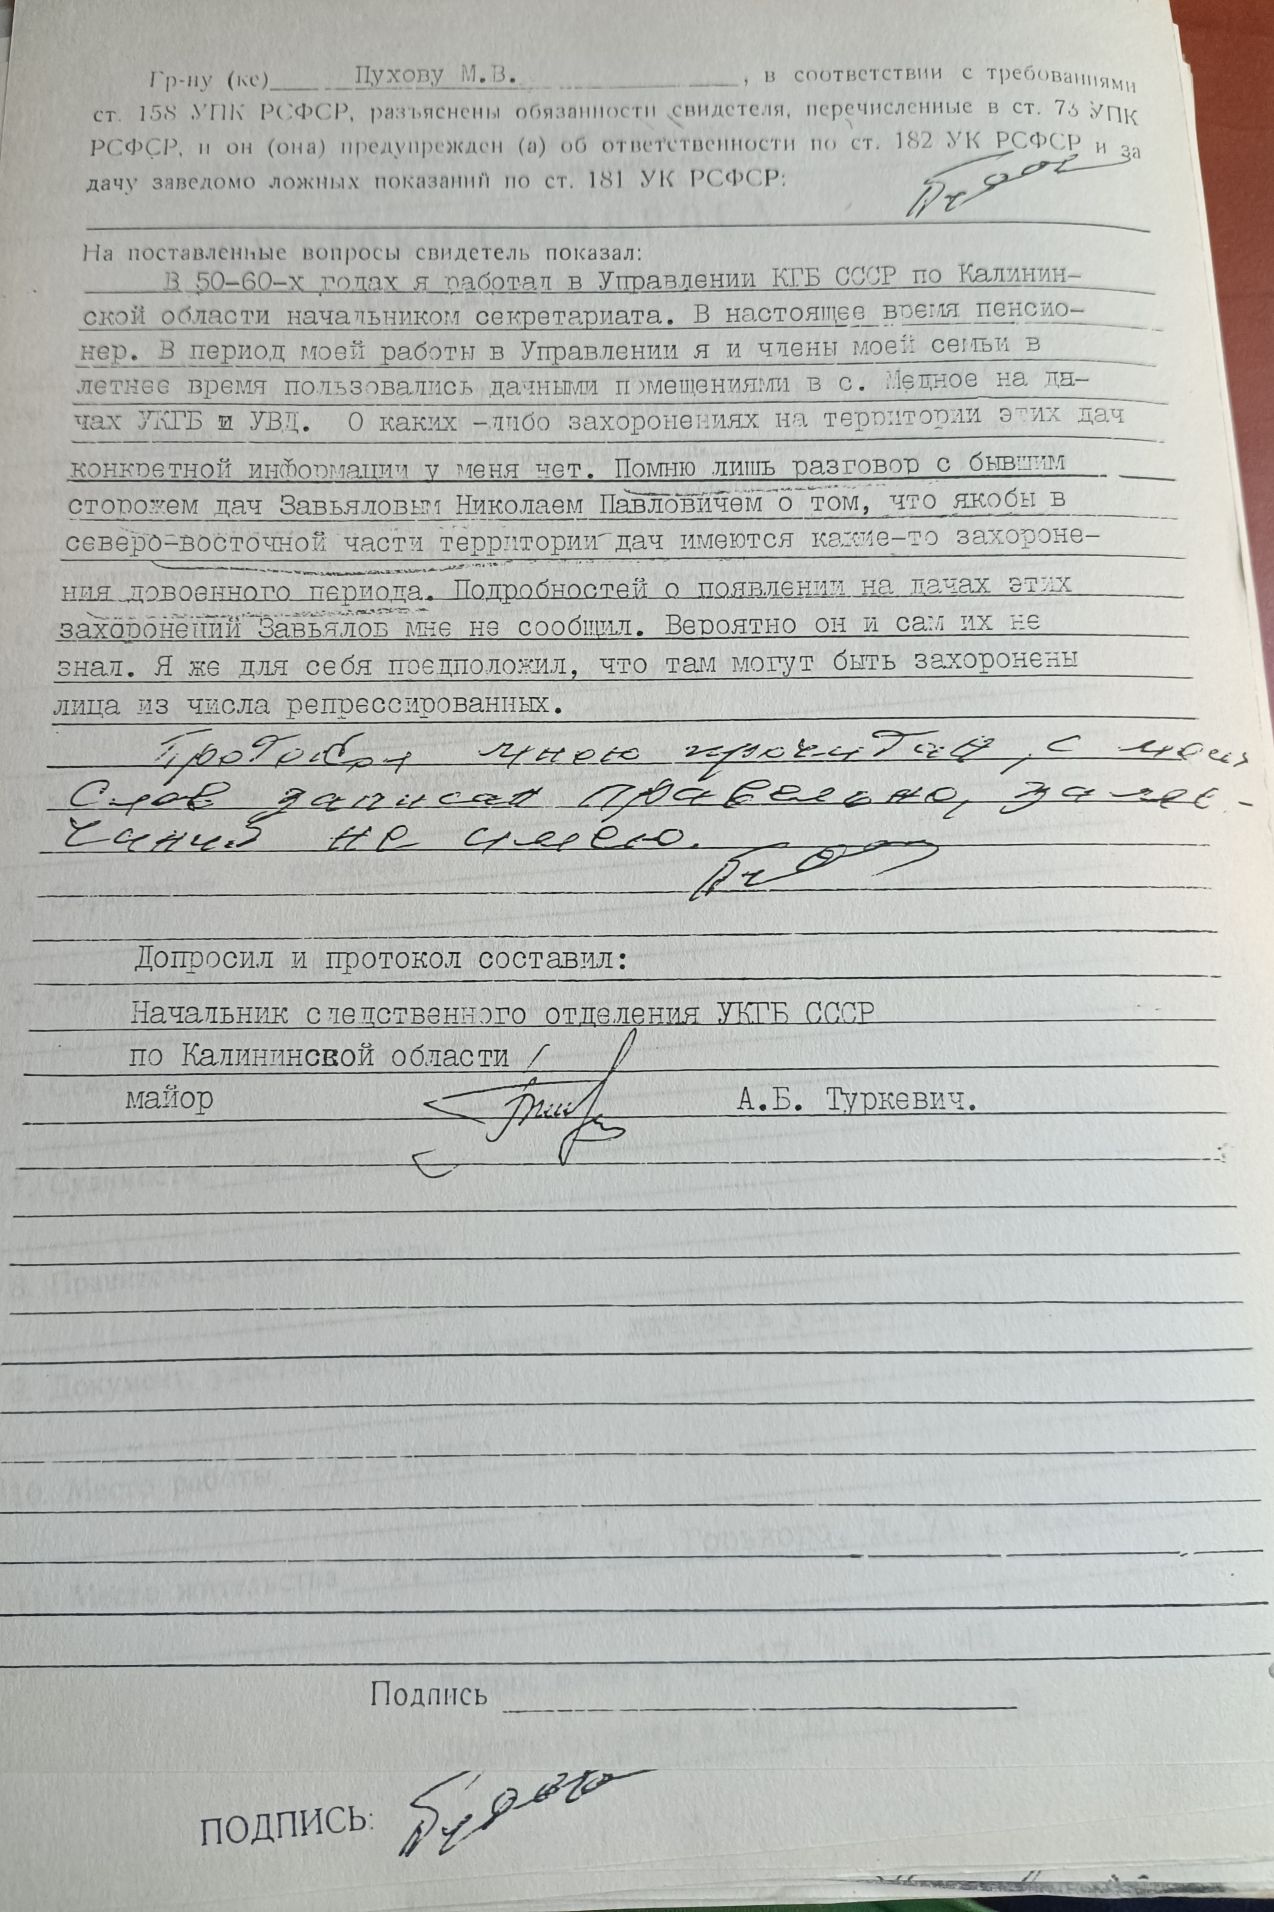 Гр-ну (ке) Пухову М.В. , в соответствии с требованиями
ст. 158 УПК РСФСР, разъяснены обязанности свидетеля, перечисленные в ст. 73 УПК
РСФСР, и он (она) предупрежден (а) об ответственности по ст. 182 УК РСФСР и за
дачу заведомо ложных показаний по ст. 181 УК РСФСР:
На поставленные вопросы свидетель показал:
В 50-60-х годах я работал в Управлении КГБ СССР по Калинин-
ской области начальником секретариата. В настоящее время пенсио-
нер. В период моей работы в Управлении я и члены моей семьи в
летнее время пользовались дачными помещениями в с. Медное на да-
чах УКГБ и УВД. О каких -либо захоронениях на территории этих дач
конкретной информации у меня нет. Помню лишь разговор с бывшим
сторожем дач Завьяловым Николаем Павловичем о том, что якобы в
северо-восточной части территории дач имеются какие-то захороне-
ния довоенного периода. Подробностей о появлении на дачах этих
захоронений Завьялов мне не сообщил. Вероятно он и сам их не
знал. Я же для себя предположил, что там могут быть захоронены
лица из числа репрессированных.
Протокол мною прочитан, с моих
слов записан правильно, заме-
чаний не имею.
Допросил и протокол составил:
Начальник следственного отделения УКГБ СССР
по Калининской области
майор А.Б. Туркевич.
Подпись
ПОДПИСЬ: